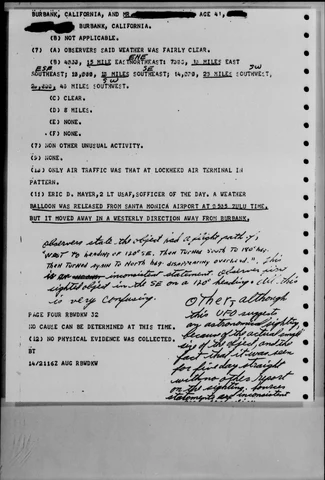 BURBANK, CALIFORNIA, AND MR AGE 41,
BURBANK, CALIFORNIA.
(B) NOT APPLICABLE.
(7) (A) OBSERVERS SAID WEATHER WAS FAIRLY CLEAR.
ENE
(B) 4000, 15 MILE EASTNORTHEAST; 7000, MILE EAST
ESE SE SW
SOUTHEAST; MILE SOUTHEAST; 14,000, MILE SOUTHWEST,
SW
MILES SOUTHWEST.
(C) CLEAR.
(D) 8 MILES.
(E) NONE.
(F) NONE.
(7) NON OTHER UNUSUAL ACTIVITY.
(9) NONE.
(10) ONLY AIR TRAFFIC WAS THAT AT LOCKHEED AIR TERMINAL IN
PATTERN.
(11) ERIC D. MAYER, 2 LT USAF, OFFICER OF THE DAY. A WEATHER
BALLOON WAS RELEASED FROM SANTA MONICA AIRPORT AT 0535 ZULU TIME,
BUT IT MOVED AWAY IN A WESTERLY DIRECTION AWAY FROM BURBANK.
observers state the object had a flight path of:
"WENT TO HEADING OF 120° SE, THEN TURNED SOUTH TO
THEN TURNED AGAIN TO NORTH DISAPPEARING OVERHEAD." This
is an inconsistent statement. observers
sighted object in the SE on a 120° heading. this
is very confusing.
Others, although
this UFO suggests
an astronomical sighting,
because of the actual
of the object, and the
fact that it was seen
for five day straight
with no other report
on the sighting. sources
statements are inconsistent
PAGE FOUR RBWDKW 32
NO CAUSE CAN BE DETERMINED AT THIS TIME.
(12) NO PHYSICAL EVIDENCE WAS COLLECTED.
BT
14/2116Z AUG RBWDKW